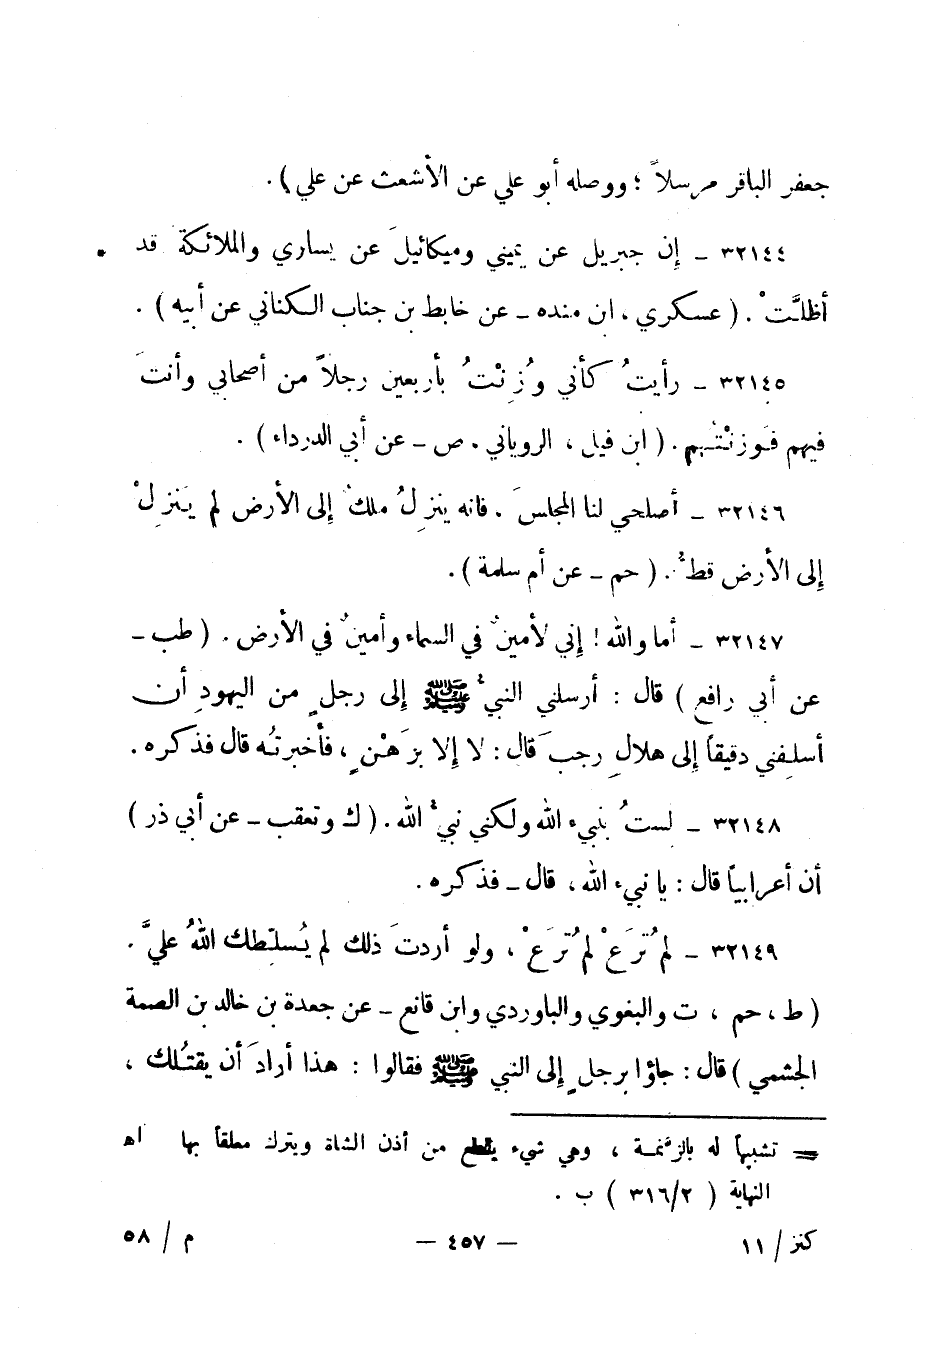 جعفر الباقر مرسلاً ؛ ووصله أبو علي عن الأشعث عن علي ) .
٣٢١٤٤ ـ إن جبريل عن يميني وميكائيلَ عن يساري والملائكة قد
أظلَّتْ . ( عسكري ، ان منده ـ عن خابط بن جناب الكناني عن أبيه ) .
٣٢١٤٥ ـ رأيتُ كأني وُزِنْتُ بأربعين رجلاً من أصحابي وأنتَ
فيهم فَوزنْتُهم . ( ابن فيل ، الروياني . ص ـ عن أبي الدرداء ) .
٣٢١٤٦ ـ أصلحي لنا المجلسَ . فانه ينزِلُ ملكٌ إلى الأرض لم يَنزِلْ
إلى الأرض قطُّ . ( حم ـ عن أم سلمة ) .
٣٢١٤٧ ـ أما والله ! إني لأمينٌ في السماء وأمينٌ في الأرض . ( طب ـ
عن أبي رافع ) قال : أرسلني النبيُّ ﷺ إلى رجلٍ من اليهودِ أن
أسلفني دقيقاً إلى هلالِ رجبَ قال : لا إلا بِرَهْنٍ ، فأخبرتُه قال فذكره .
٣٢١٤٨ ـ لستُ بنبيء الله ولكني نبيُّ الله . ( ك وتعقب ـ عن أبي ذر )
أن أعرابياً قال : يا نبيء الله ، قال ـ فذكره .
٣٢١٤٩ ـ لم تُرَعْ لم تُرَعْ ، ولو أردتَ ذلك لم يُسلِّطك اللهُ عليَّ .
( ط ، حم ، ت والبغوي والباوردي وابن قانع ـ عن جعدة بن خالد بن الصمة
الجشمي ) قال : جاؤا برجلٍ إلى النبي ﷺ فقالوا : هذا أرادَ أن يقتُلك ،
= تشبيهاً له بالزَّنَمة ، وهي شيء يقطع من أذن الشاة ويترك معلقاً بها اه
النهاية ( ٣١٦/٢ ) ب .
كنز / ١١ — ٤٥٧ — م / ٥٨